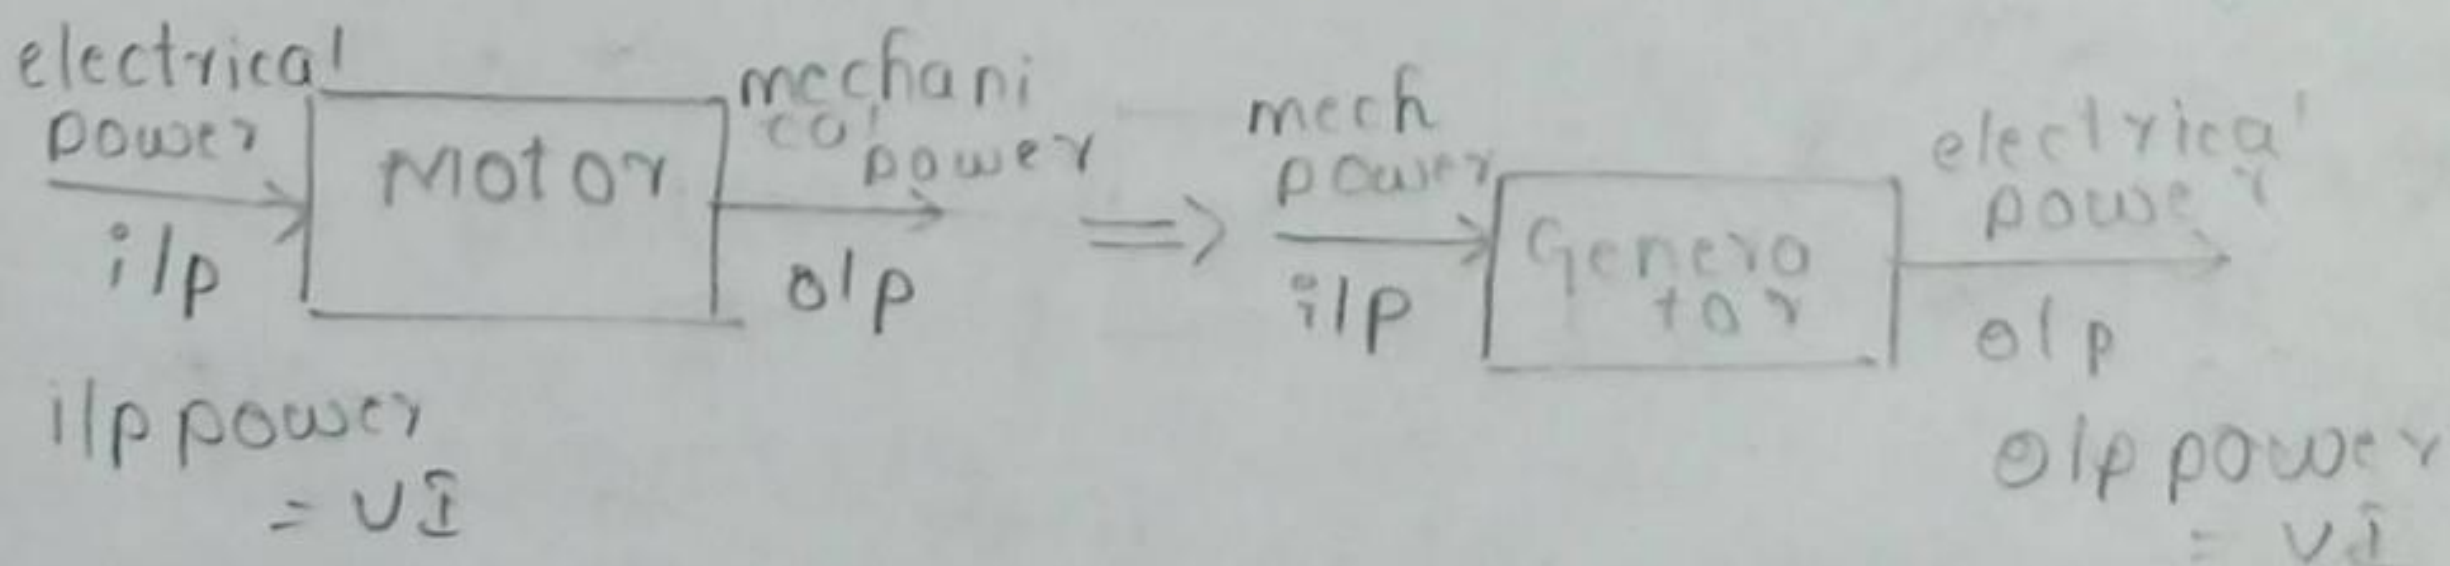 electrical
power
i/p
Motor
mechani
cal
power
o/p
i/p power
= VI
⇒
mech
power
i/p
Genera
tor
electrical
power
o/p
o/p power
= VI